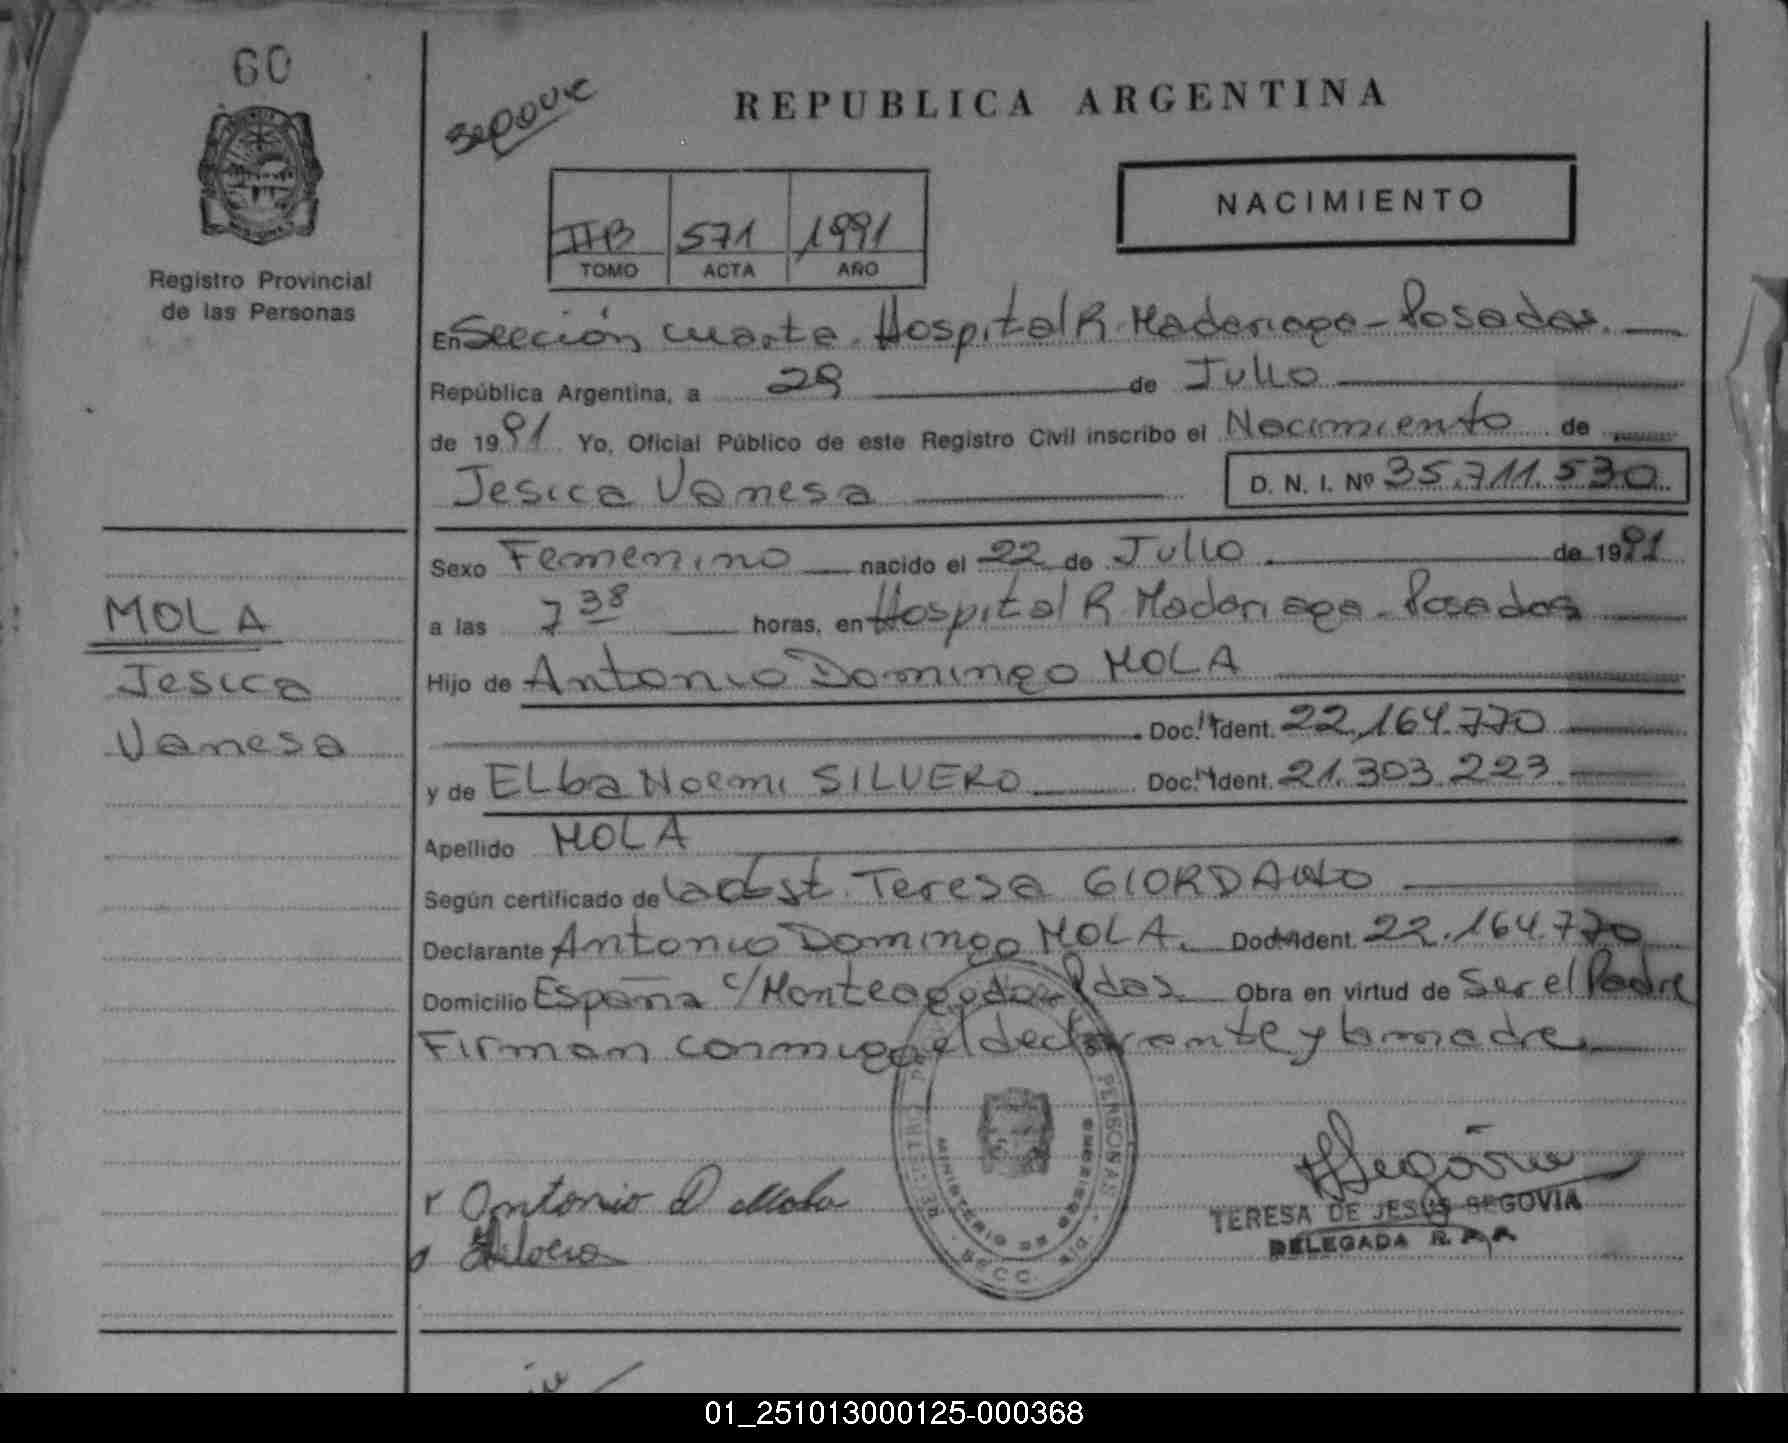 60
REPUBLICA ARGENTINA
NACIMIENTO
IIB 571 1991
TOMO ACTA AÑO
Registro Provincial
de las Personas
En Sección cuarta. Hospital R. Madariaga - Posadas.
República Argentina, a 29 de Julio
de 1991 Yo, Oficial Público de este Registro Civil inscribo el Nacimiento de
Jesica Vanesa D. N. I. Nº 35.711.530
Sexo Femenino nacido el 22 de Julio de 1991
MOLA
a las 7 38 horas, en Hospital R. Madariaga - Posadas
Jesica
Hijo de Antonio Domingo MOLA
Vanesa
Doc. Ident. 22.164.770
y de ELba Noemi SILVERO Doc. Ident. 21.303.223
Apellido MOLA
Según certificado de la obst. Teresa GIORDANO
Declarante Antonio Domingo MOLA. Doc. Ident. 22.164.770
Domicilio España c/Monteagudo Pdas Obra en virtud de Ser el Padre
Firman conmigo el declarante y la madre
REGISTRO PERSONAS
MINISTERIO DE GOBIERNO
Antonio D Mola
Silvero
Segovia
TERESA DE JESUS SEGOVIA
DELEGADA R. P. P.
01_251013000125-000368